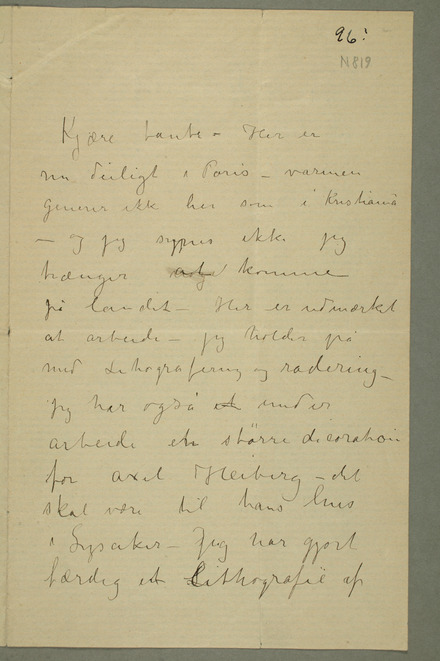 96!
N 819
Kjære Tante – Her er
nu deiligt i Paris – varmen
generer ikke her som i Kristiania
– og jeg synes ikke jeg
trænger komme
på landet – Her er udmærket
at arbeide – jeg holder på
med Lithografering og radering –
jeg har også et under
arbeide en större decoration
for Axel Heiberg – det
skal være til hans hus
i Lysaker – Jeg har gjort
færdig et Lithografie af